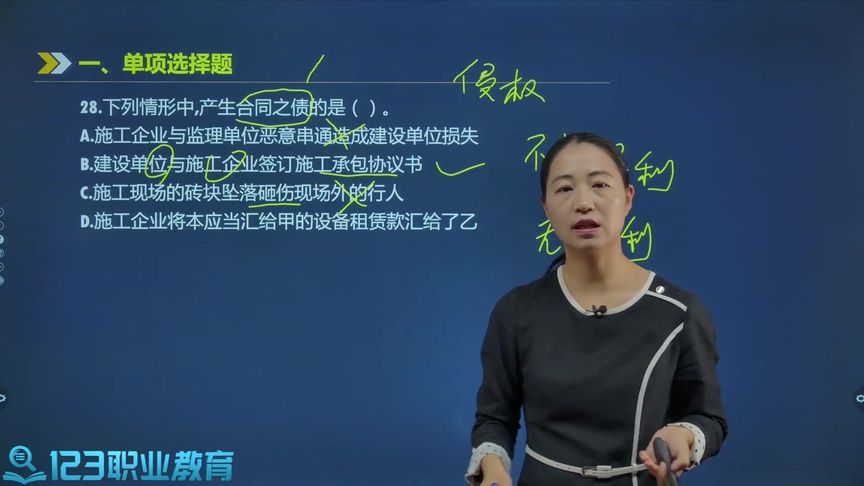 一、单项选择题
侵权
28.下列情形中,产生合同之债的是（ ）。
A.施工企业与监理单位恶意串通造成建设单位损失
B.建设单位与施工企业签订施工承包协议书
不
利
C.施工现场的砖块坠落砸伤现场外的行人
D.施工企业将本应当汇给甲的设备租赁款汇给了乙
无
利
123职业教育